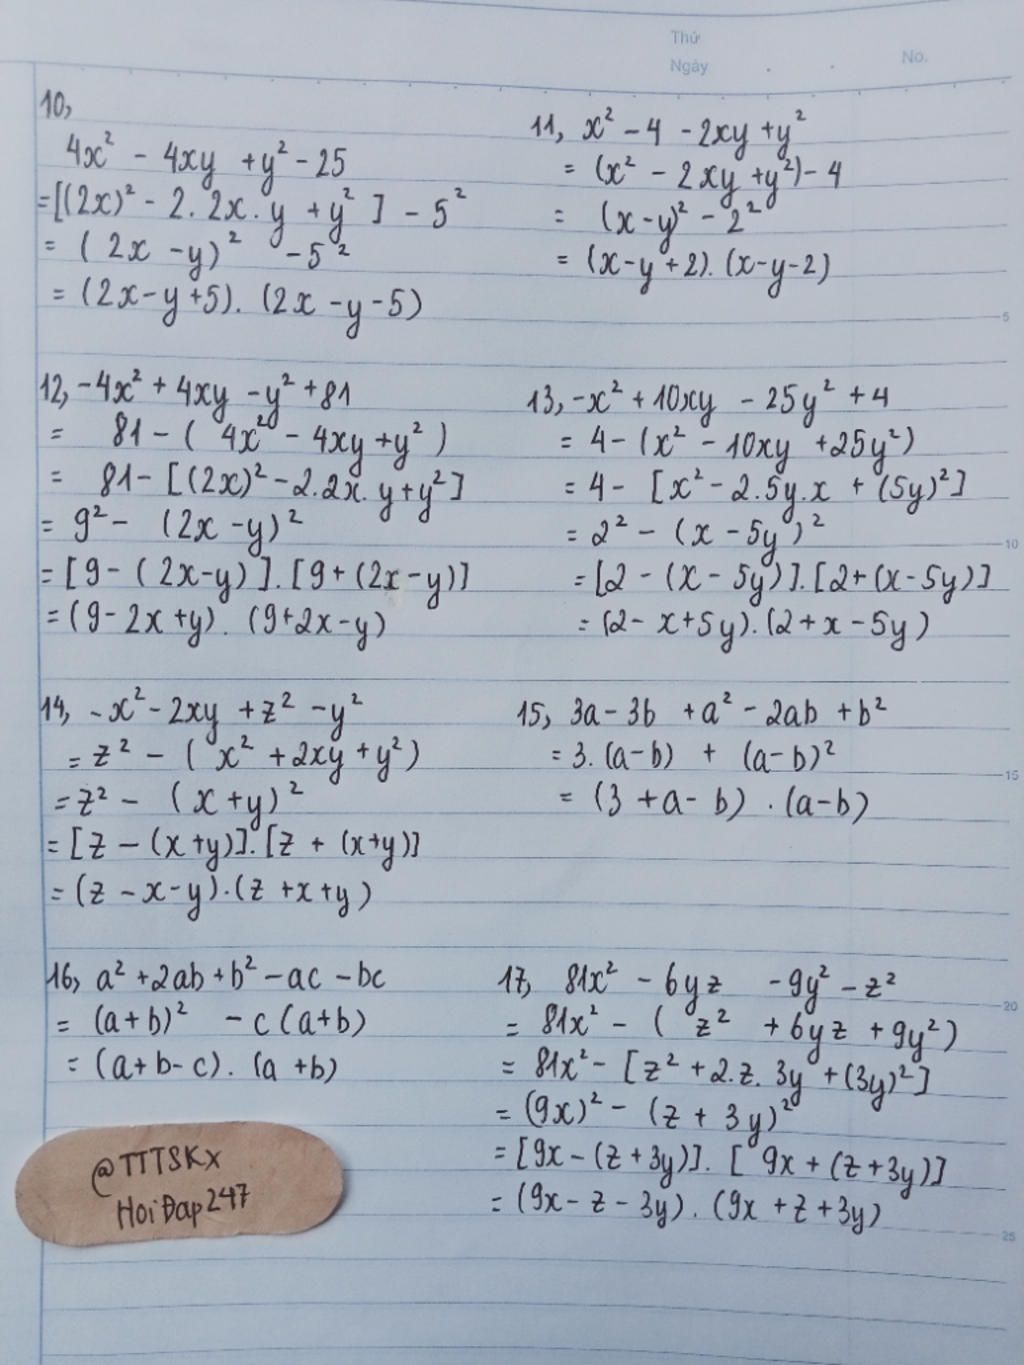 Thứ
Ngày . . No.
10,
4x² - 4xy + y² - 25
= [(2x)² - 2. 2x. y + y² ] - 5²
= ( 2x - y)² - 5²
= (2x - y + 5). (2x - y - 5)
11, x² - 4 - 2xy + y²
= (x² - 2xy + y²) - 4
= (x - y)² - 2²
= (x - y + 2). (x - y - 2)
5
12, -4x² + 4xy - y² + 81
= 81 - ( 4x² - 4xy + y² )
= 81 - [(2x)² - 2.2x. y + y²]
= 9² - (2x - y)²
= [9 - ( 2x - y) ]. [9 + (2x - y)]
= (9 - 2x + y). (9 + 2x - y)
13, -x² + 10xy - 25y² + 4
= 4 - (x² - 10xy + 25y²)
= 4 - [x² - 2.5y.x + (5y)²]
= 2² - (x - 5y)²
= [2 - (x - 5y)].[2 + (x - 5y)]
= (2 - x + 5y).(2 + x - 5y)
10
14, -x² - 2xy + z² - y²
= z² - ( x² + 2xy + y²)
= z² - (x + y)²
= [z - (x + y)].[z + (x + y)]
= (z - x - y).(z + x + y)
15, 3a - 3b + a² - 2ab + b²
= 3.(a - b) + (a - b)²
= (3 + a - b) . (a - b)
15
16, a² + 2ab + b² - ac - bc
= (a + b)² - c (a + b)
= (a + b - c). (a + b)
17, 81x² - 6yz - 9y² - z²
= 81x² - ( z² + 6yz + 9y²)
= 81x² - [z² + 2.z. 3y + (3y)²]
= (9x)² - (z + 3y)²
= [9x - (z + 3y)]. [ 9x + (z + 3y)]
= (9x - z - 3y). (9x + z + 3y)
20
25
@TTTSKx
HoiĐap247